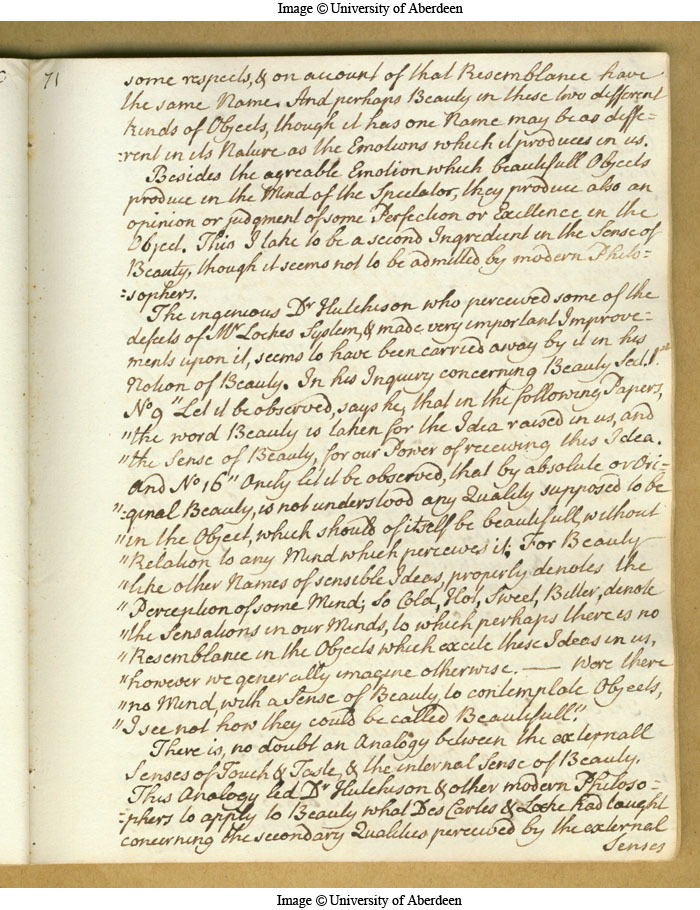 Image © University of Aberdeen
71
some respects, & on account of that Resemblance have
the same Name. And perhaps Beauty in these two different
Kinds of Objects, though it has one Name may be as diffe=
=rent in its Nature as the Emotions which it produces in us.
Besides the agreable Emotion which beautifull Objects
produce in the Mind of the Spectator, they produce also an
opinion or judgment of some Perfection or Excellence in the
Object. This I take to be a second Ingredient in the Sense of
Beauty, though it seems not to be admitted by modern Philo=
=sophers.
The ingenious Dr Hutchison who perceived some of the
defects of Mr Lockes System, & made very important Improve=
ments upon it, seems to have been carried away by it in his
Notion of Beauty. In his Inquiry concerning Beauty Sect. 1st
No 9 "Let it be observed, says he, that in the following Papers,
"the word Beauty is taken for the Idea raised in us, and
"the Sense of Beauty, for our Power of receiving this Idea.
And No 16 "Onely let it be observed, that by absolute or Ori=
"=ginal Beauty, is not understood any Quality supposed to be
"in the Object, which should of itself be beautifull, without
"Relation to any Mind which perceives it. For Beauty
"like other Names of sensible Ideas, properly denotes the
"Perception of some Mind; so Cold, Hot, Sweet, Bitter, denote
"the Sensations in our Minds, to which perhaps there is no
"Resemblance in the Objects which excite these Ideas in us,
"however we generally imagine otherwise. — Were there
"no Mind, with a Sense of Beauty, to contemplate Objects,
"I see not how they could be called Beautifull."
There is, no doubt an Analogy between the externall
Senses of Touch & Taste, & the internal Sense of Beauty.
This Analogy led Dr Hutchison & other modern Philoso=
=phers to apply to Beauty what Des Cartes & Locke had taught
concerning the secondary Qualities perceived by the external
Senses
Image © University of Aberdeen